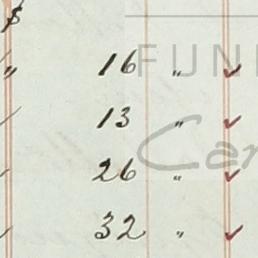 $
" 16 " ✓
13 " ✓
26 " ✓
32 " ✓
FUN
Car